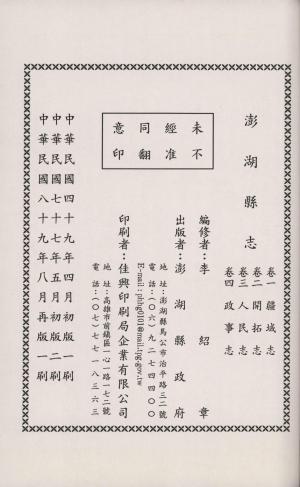 澎湖縣志
卷一疆域志
卷二開拓志
卷三人民志
卷四政事志
未經同意
不准翻印
編修者：李紹章
出版者：澎湖縣政府
地址：澎湖縣馬公市治平路三二號
電話：(〇六)九二七四四〇〇
E-mail：phhg0101@mail.tpg.gov.tw
印刷者：佳興印刷局企業有限公司
地址：高雄市前鎮區一心一路一七二號
電話：(〇七)七七一八三六三
中華民國四十九年四月初版一刷
中華民國七十七年五月初版二刷
中華民國八十九年八月再版一刷